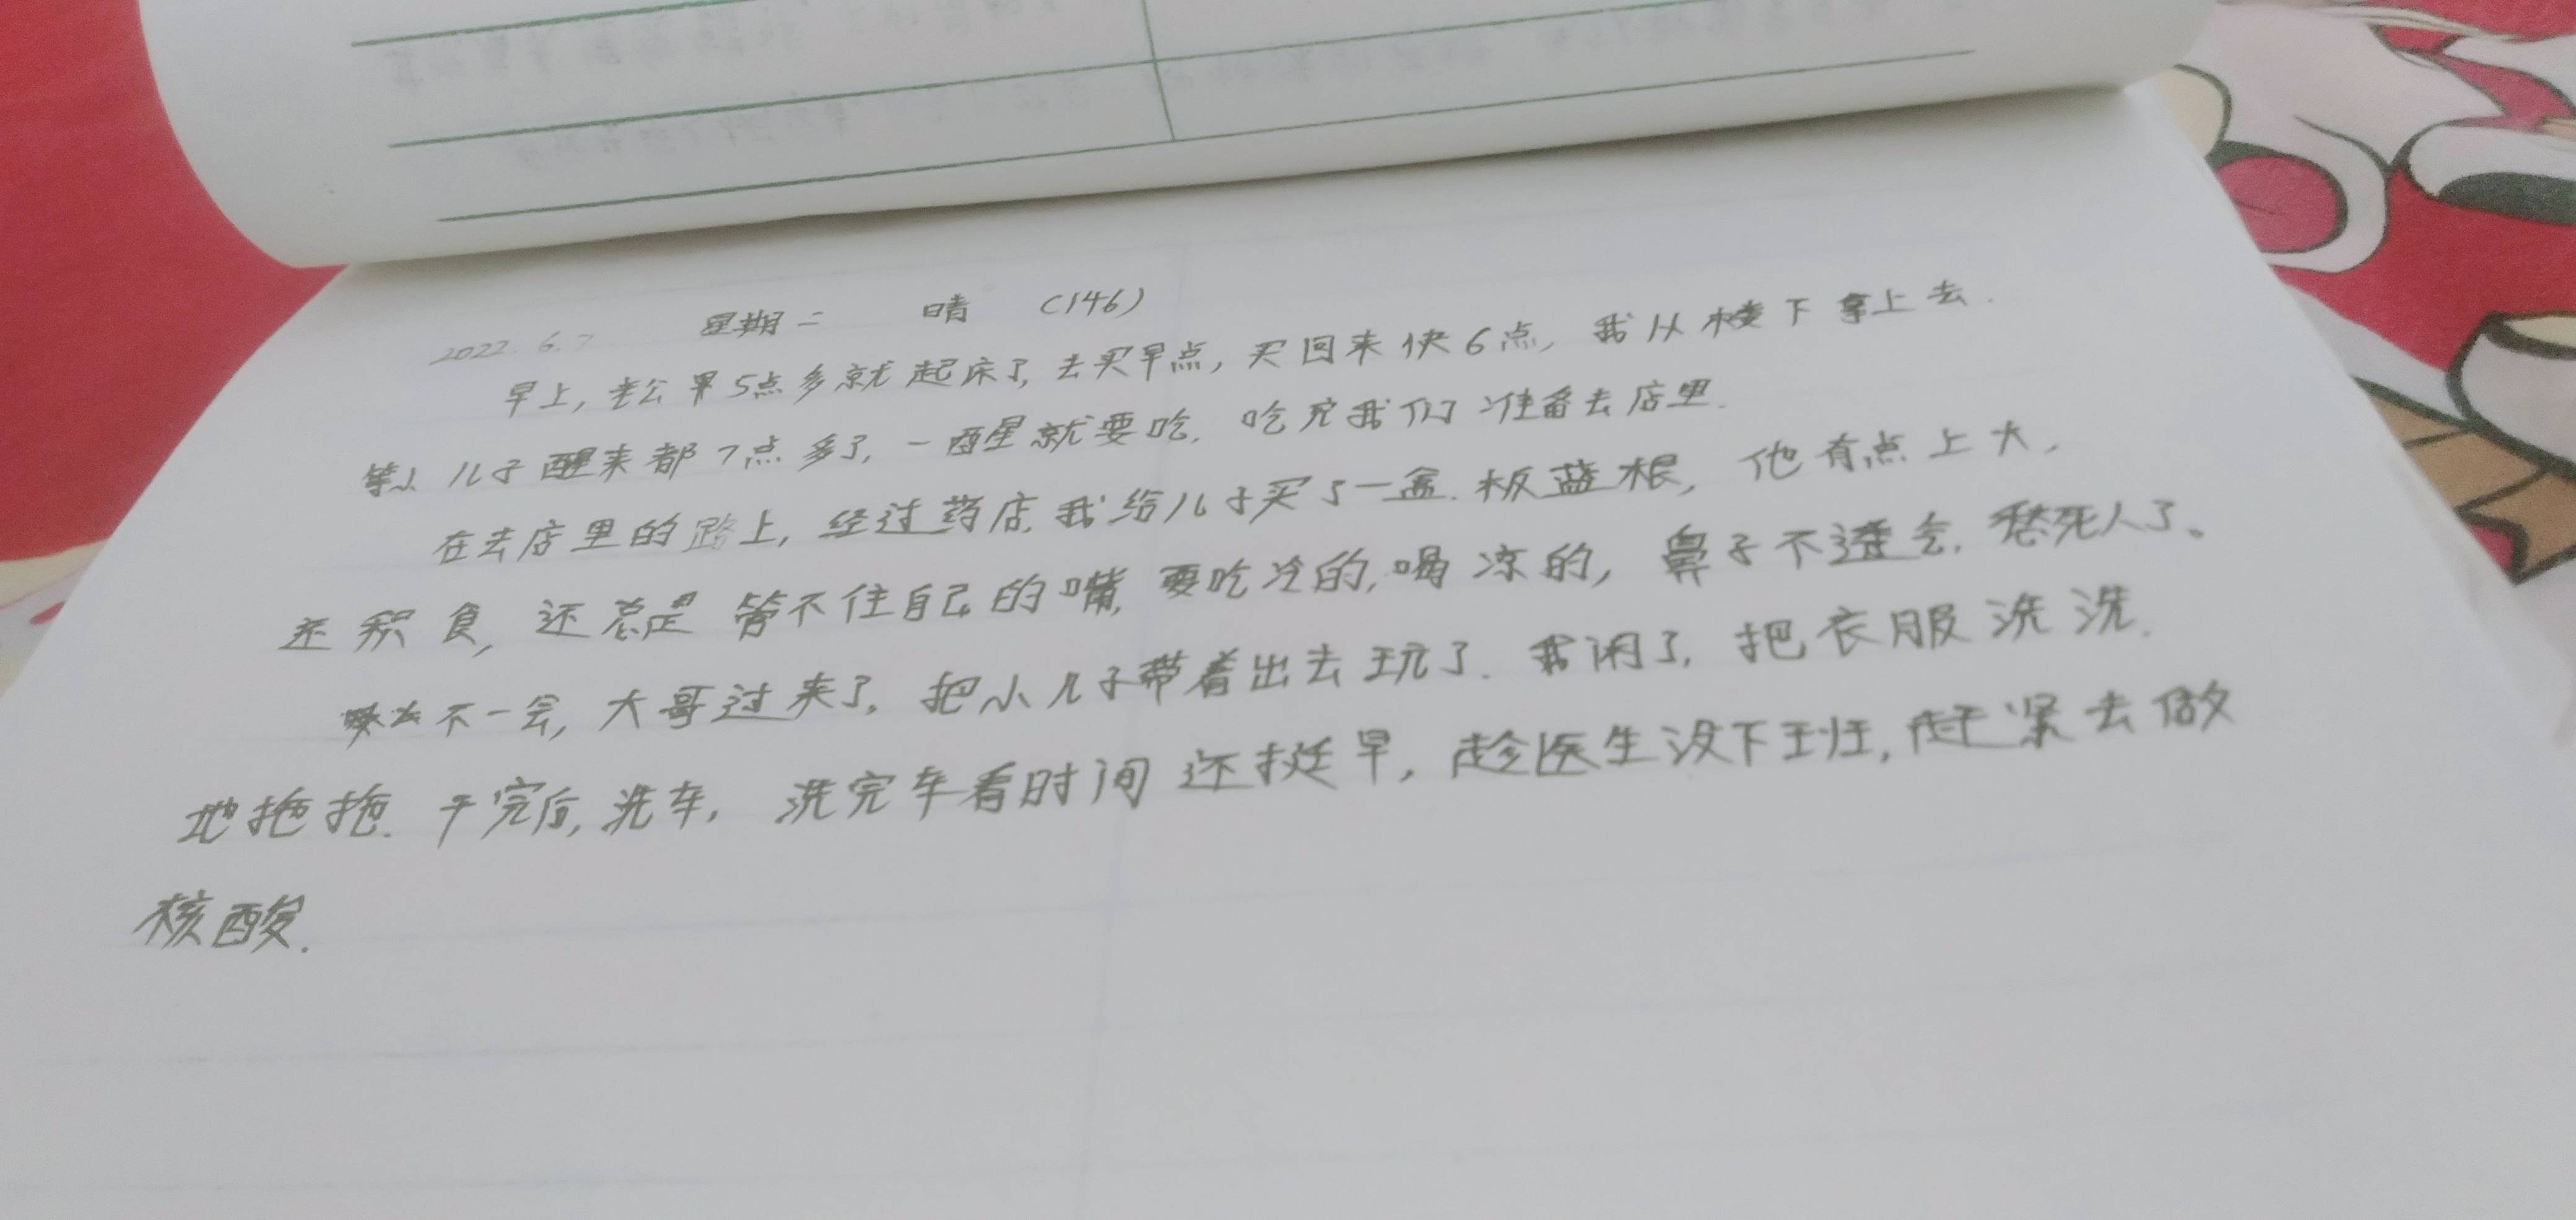 2022.6.7 星期二 晴 (146)
早上,老公早5点多就起床了,去买早点,买回来快6点,我从楼下拿上去.
等小儿子醒来都7点多了,一醒就要吃.吃完我们准备去店里.
在去店里的路上,经过药店,我给儿子买了一盒.板蓝根,他有点上火,
还积食,还总是管不住自己的嘴,要吃冷的,喝凉的,鼻子不透气,愁死人了。
不一会,大哥过来了,把小儿子带着出去玩了.我闲了,把衣服洗洗.
地拖拖.干完后,洗车,洗完车看时间还挺早,趁医生没下班,赶紧去做
核酸.